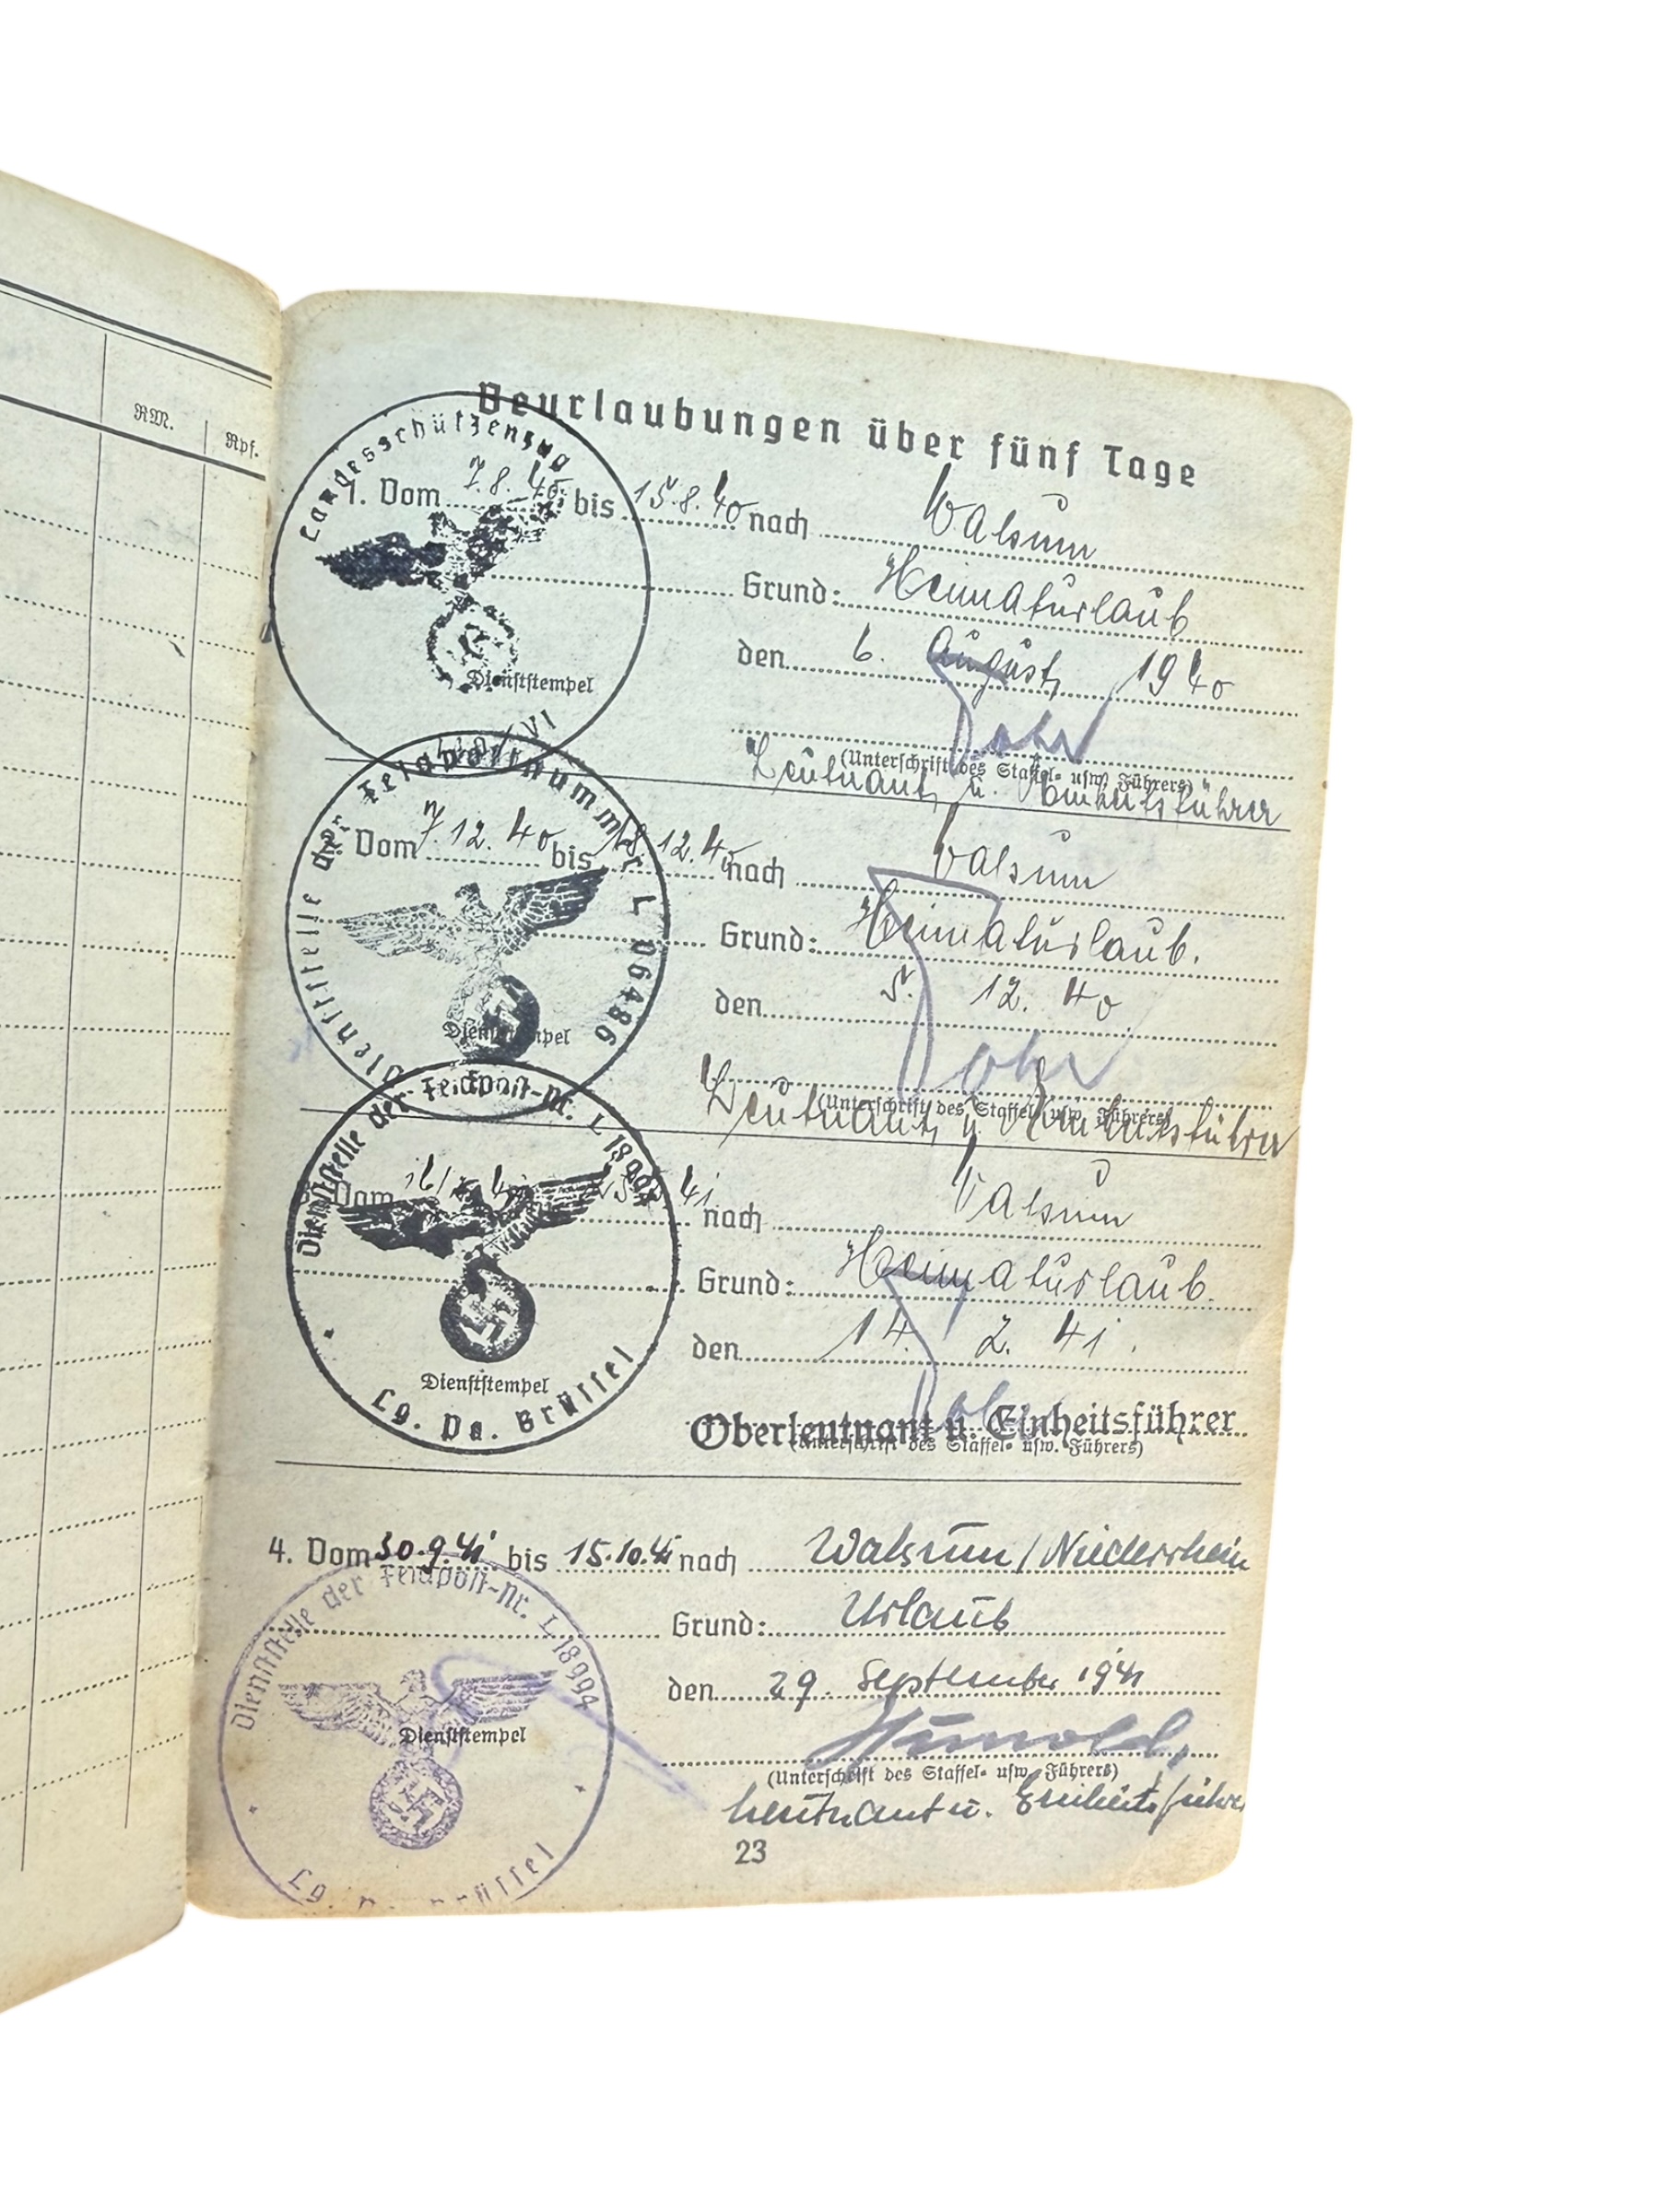 RM.
Rpf.
Beurlaubungen über fünf Tage
Landesschützenzug
1. Vom 7.8.40 bis 15.8.40 nach Walsum
Grund: Heimaturlaub
den 6. August 1940
Dienststempel
/VI
(Unterschrift des Staffel- usw. Führers)
Leutnant u. Einheitsführer
Dienststelle der Feldpostnummer L 06486
Vom 7.12.40 bis 18.12.40 nach Walsum
Grund: Heimaturlaub.
den 5. 12. 40
Dienststempel
(Unterschrift des Staffel- usw. Führers)
Leutnant u. Einheitsführer
Dienststelle der Feldpost-Nr. L 18994
Vom 41 nach Walsum
Grund: Heimaturlaub.
den 14. 2. 41.
Dienststempel
Lg. Pa. Brüssel
Oberleutnant u. Einheitsführer
(Unterschrift des Staffel- usw. Führers)
4. Vom 30.9.41 bis 15.10.41 nach Walsum/Niederrhein
Dienststelle der Feldpost-Nr. L 18994
Grund: Urlaub
den 29. September 1941
Dienststempel
Hunold,
(Unterschrift des Staffel- usw. Führers)
Leutnant u. Einheitsführer
Lg. Brüssel
23